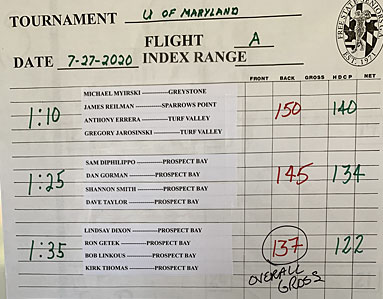 TOURNAMENT U OF MARYLAND
FLIGHT A
DATE 7-27-2020 INDEX RANGE
FRONT BACK GROSS HDCP NET
MICHAEL MYIRSKI ------------GREYSTONE
1:10 JAMES REILMAN ------------SPARROWS POINT 150 140
ANTHONY ERRERA ------------TURF VALLEY
GREGORY JAROSINSKI ------------TURF VALLEY
SAM DIPHILIPPO ------------PROSPECT BAY
1:25 DAN GORMAN ------------PROSPECT BAY 145 134
SHANNON SMITH ------------PROSPECT BAY
DAVE TAYLOR ------------PROSPECT BAY
LINDSAY DIXON ------------PROSPECT BAY
1:35 RON GETEK ------------PROSPECT BAY 137 122
BOB LINKOUS ------------PROSPECT BAY
KIRK THOMAS ------------PROSPECT BAY
OVERALL
GROSS